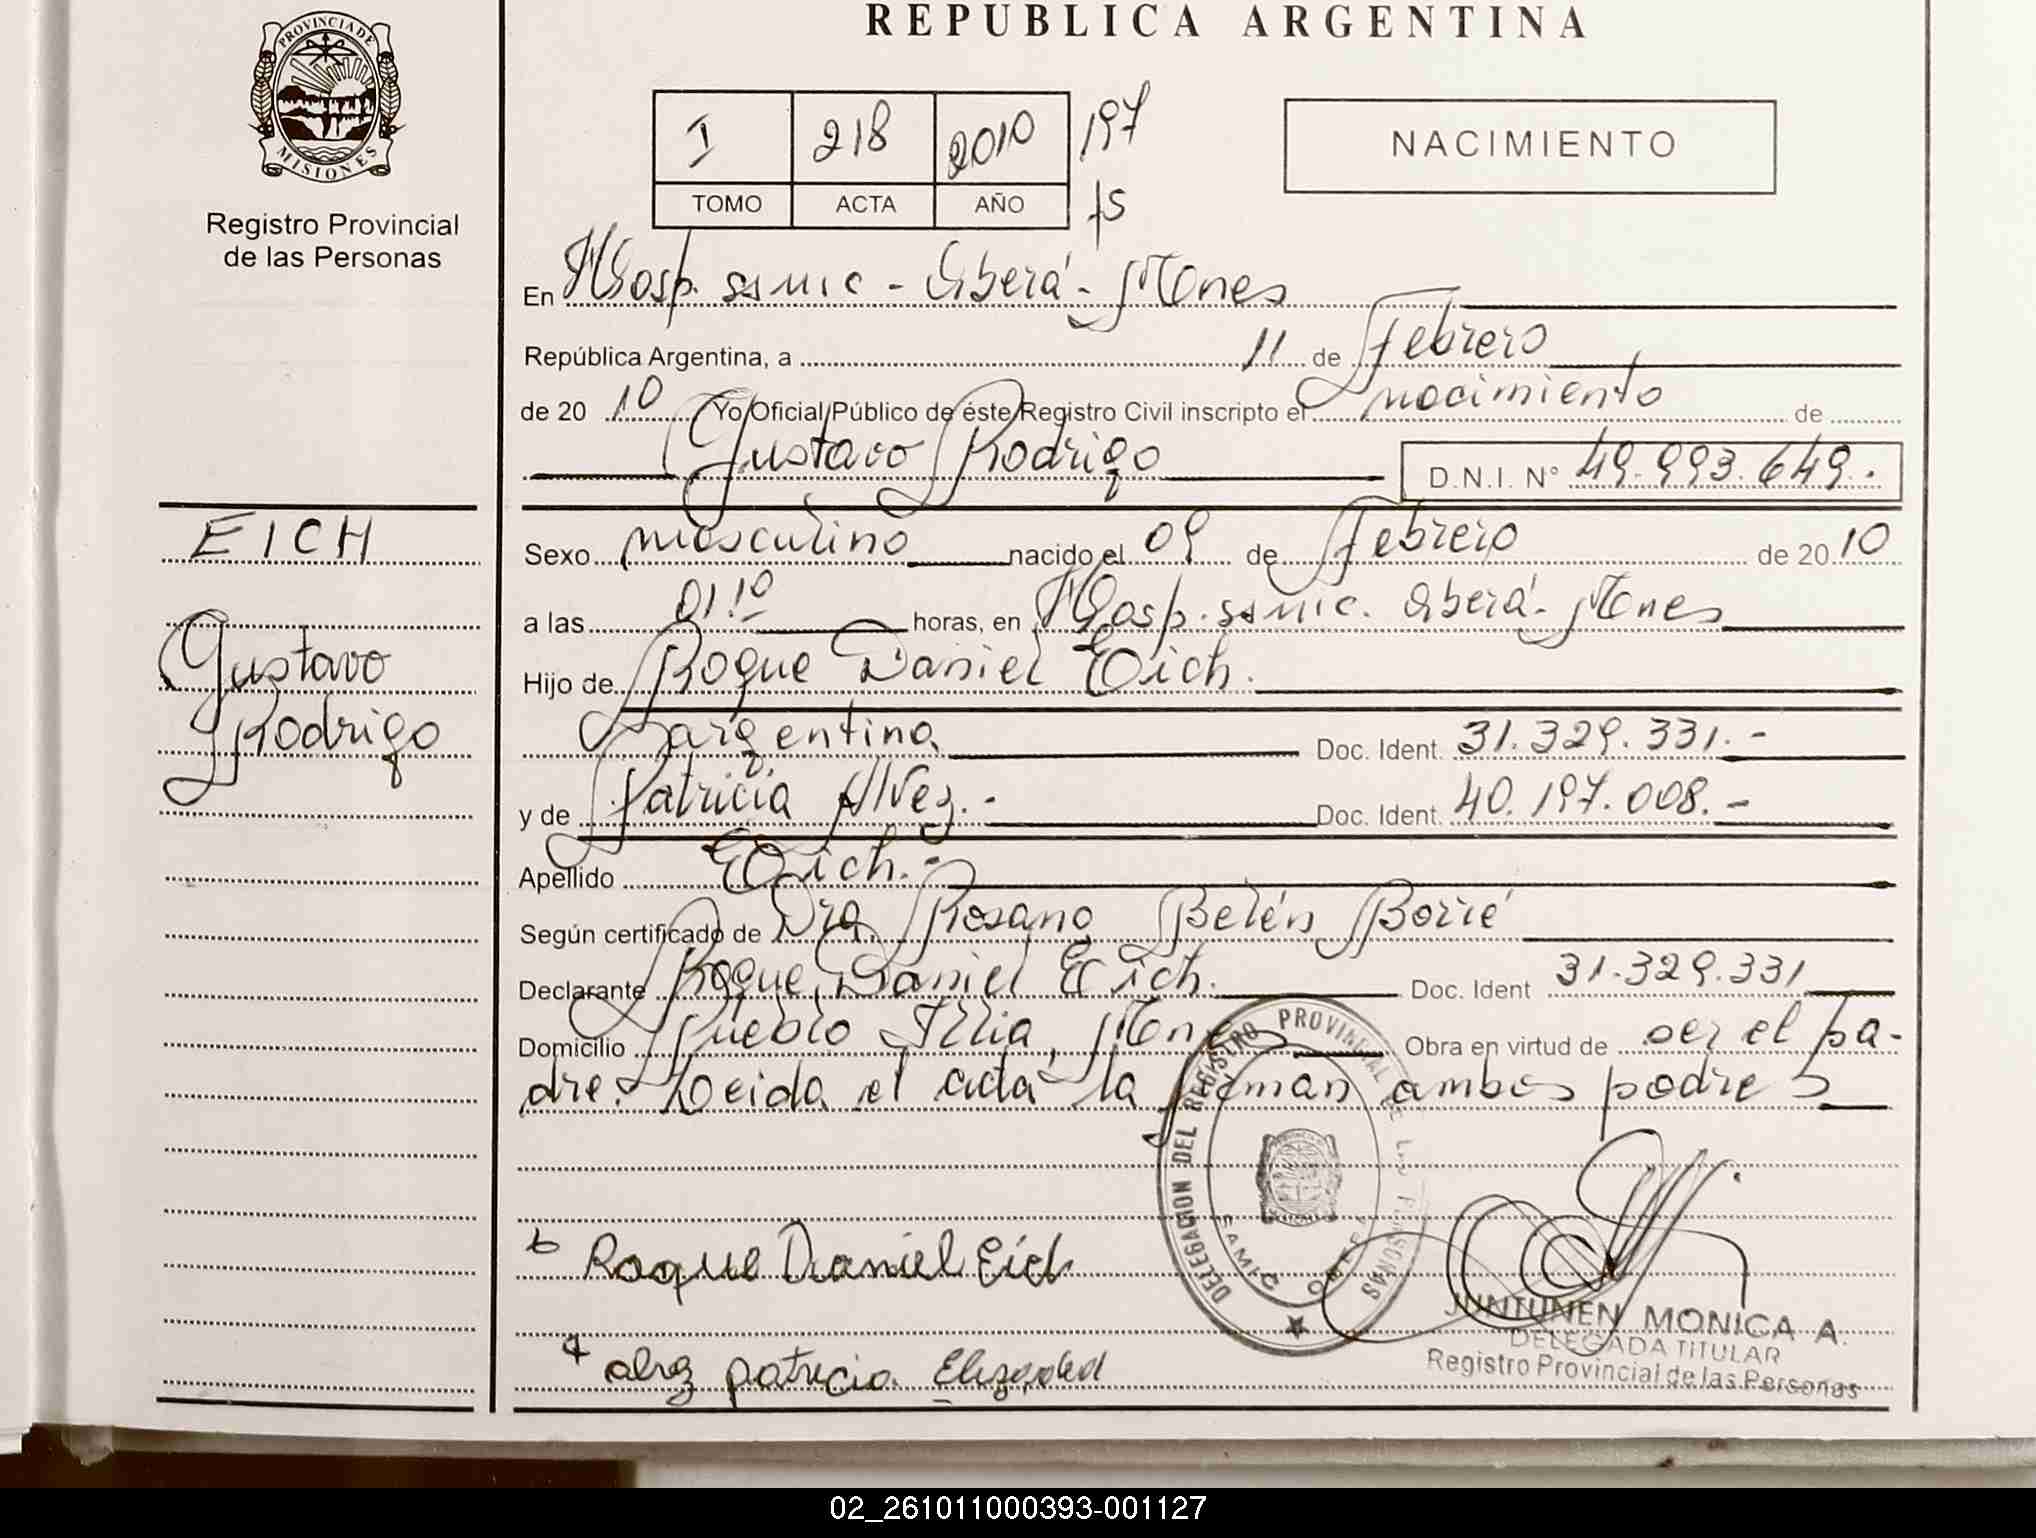 REPUBLICA ARGENTINA
PROVINCIA DE
MISIONES
Registro Provincial
de las Personas
I 218 2010 197
TOMO ACTA AÑO fs
NACIMIENTO
En Hosp. SAMIC - Oberá - Mnes
República Argentina, a 11 de Febrero
de 20 10 Yo Oficial Público de éste Registro Civil inscripto el nacimiento de
Gustavo Rodrigo D.N.I. N° 49.993.649.
EICH
Gustavo
Rodrigo
Sexo masculino nacido el 09 de Febrero de 20 10
a las 01.10 horas, en Hosp. SAMIC. Oberá - Mnes
Hijo de Roque Daniel Eich.
argentina Doc. Ident. 31.329.331.-
y de Patricia Alvez.- Doc. Ident. 40.197.008.-
Apellido Eich.-
Según certificado de Dra. Rosana Belén Borré
Declarante Roque Daniel Eich. Doc. Ident 31.329.331
Domicilio Pueblo Illia, Mnes Obra en virtud de ser el pa-
dre. Leida el acta la firman ambos padres
DELEGACION DEL REGISTRO PROVINCIAL DE LAS PERSONAS
SAMIC
Roque Daniel Eich
patricia
JUNTUNEN MONICA A.
DELEGADA TITULAR
Registro Provincial de las Personas
02_261011000393-001127